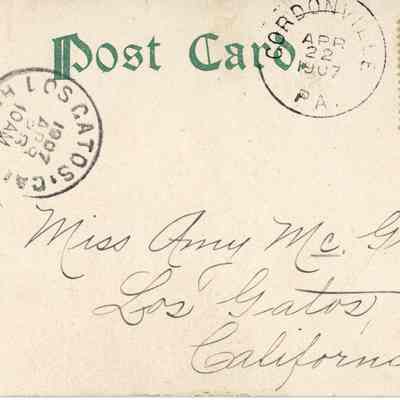 Post Card.
GORDONVILLE
APR
22
1907
PA.
LOS GATOS, CAL
1907
APR
10AM
Miss Amy Mc. G
Los Gatos,
Californ